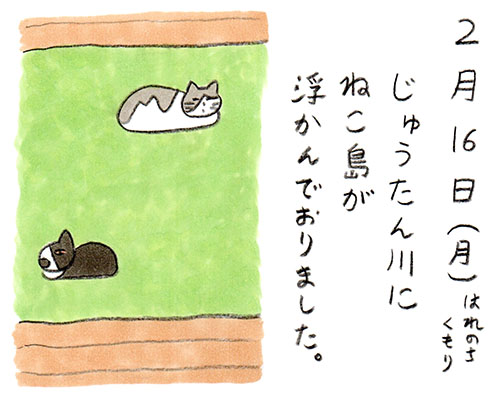 2月16日(月)はれのち
くもり
じゅうたん川に
ねこ島が
浮かんでおりました。